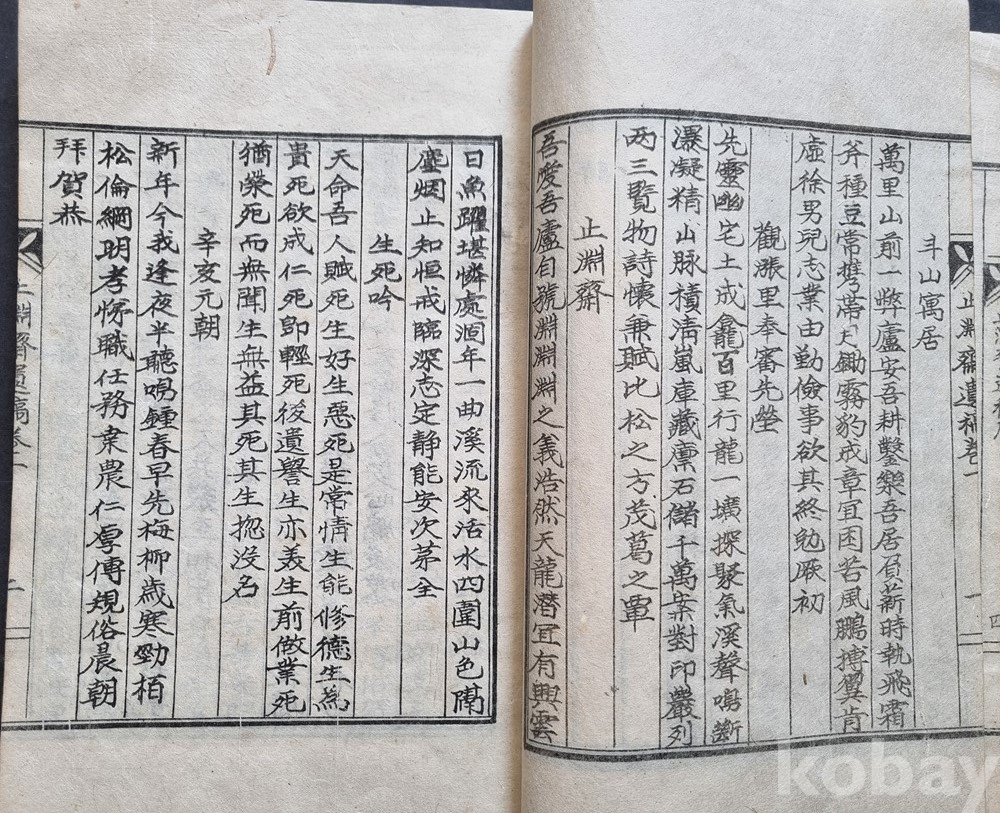 斗山寓居
萬里山前一弊廬安吾耕鑿樂吾居負薪時執飛霜
斧種豆常携帶月鋤霧豹成章宜困苦風鵬搏翼肯
虛徐男兒志業由勤儉事欲其終勉厥初
觀漲里奉審先塋
先靈幽宅土成龕百里行龍一壙探聚氣溪聲鳴斷
瀑凝精山脉積淸嵐庫藏廩石儲千萬案對印嚴列
兩三覽物詩懷兼賦比松之方茂葛之覃
止淵齋
吾愛吾廬自號淵淵淵之義浩然天龍潛宜有興雲
日魚躍堪憐處涸年一曲溪流來活水四圍山色隔
塵烟止知恒戒臨深志定靜能安次茅全
生死吟
天命吾人賦死生好生惡死是常情生能修德生爲
貴死欲成仁死卽輕死後遺譽生亦義生前做業死
猶榮死而無聞生無益其死其生摠沒名
辛亥元朝
新年今我逢夜半聽鳴鍾春早先梅柳歲寒勁栢
松倫綱明孝悌職任務業農仁厚傳規俗晨朝
拜賀恭
止淵齋遺稿卷一
一
止淵齋遺稿卷一
二
四
kobay